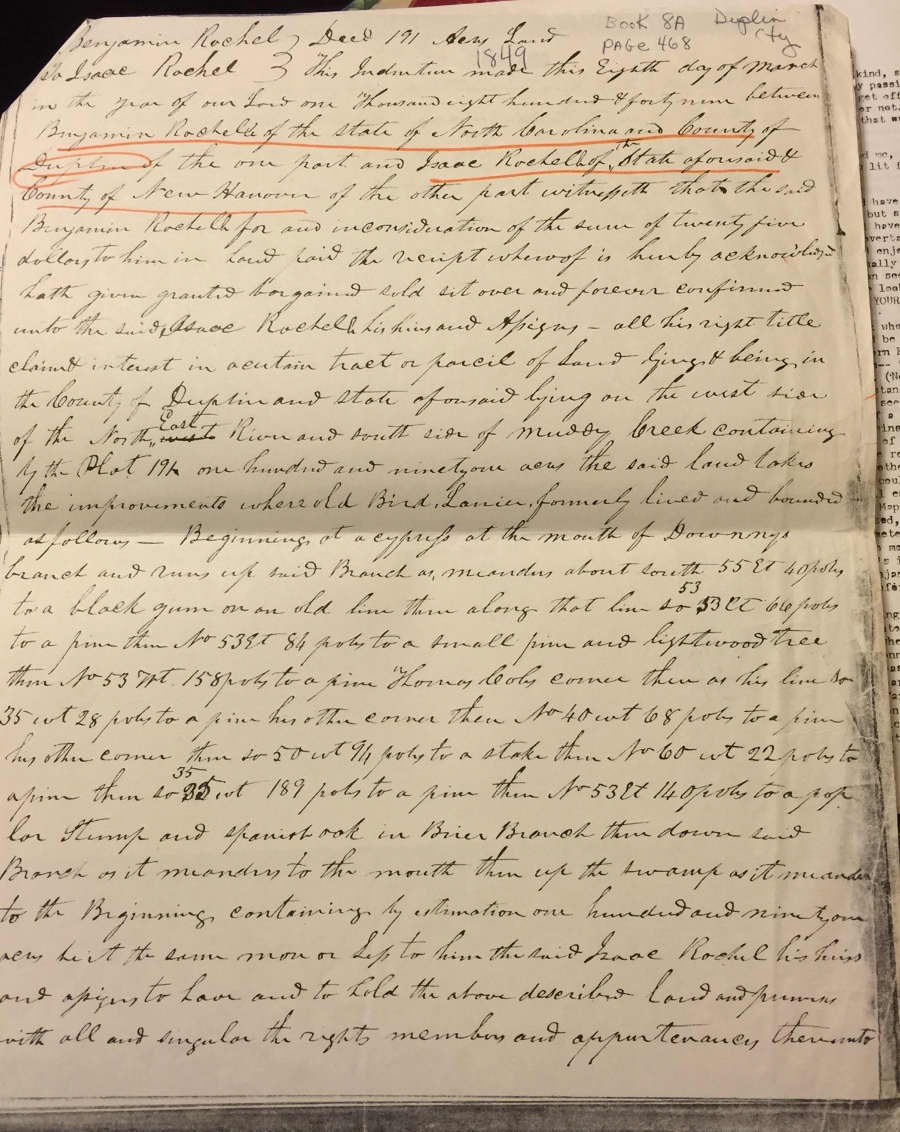 Book 8A Duplin
Page 468 Cty
1849
Benjamin Rochel } Deed 191 Acres Land
To Isaac Rochel } This Indenture made this Eighth day of March
in the year of our Lord one Thousand eight hundred & forty nine between
Benjamin Rochell of the state of North Carolina and County of
Duplin of the one part and Isaac Rochell of the State aforesaid &
County of New Hanover of the other part witnesseth that the said
Benjamin Rochell for and inconsideration of the sum of twenty five
dollars to him in hand paid the receipt whereof is hereby acknowledged
hath given granted bargained sold sit over and forever confirmed
unto the said Isaac Rochell his heirs and Assigns – all his right title
claim & interest in a certain tract or parcil of Land lying & being in
the County of Duplin and state aforesaid lying on the west side
of the North East River and south side of muddy Creek containing
by the Plat 191 one hundred and ninetyone acres the said land takes
the improvements where old Bird Lanier formerly lived and bounded
as follows – Beginning at a cypress at the mouth of Downings
branch and runs up said Branch as meanders about south 55 Et 40 poles
to a black gum on an old line then along that line so 53 Et 66 poles
to a pine then No 53 Et 84 poles to a small pine and lightwood tree
then No 53 Wt. 158 poles to a pine Thomas Coles corner then as his line so
35 wt 28 poles to a pine his other corner then No 40 wt 68 poles to a pine
his other corner then so 50 wt 94 poles to a stake then No 60 wt 22 poles to
a pine then so 35 wt 189 poles to a pine then No 53 Et 140 poles to a pop
lor Stump and spanish oak in Brier Branch then down said
Branch as it meanders to the mouth then up the swamp as it meanders
to the Beginning containing by estimation one hundred and ninetyone
acres be it the same more or less to him the said Isaac Rochel his heirs
and assigns to have and to hold the above described land and premises
with all and singular the rights members and appurtenances thereunto